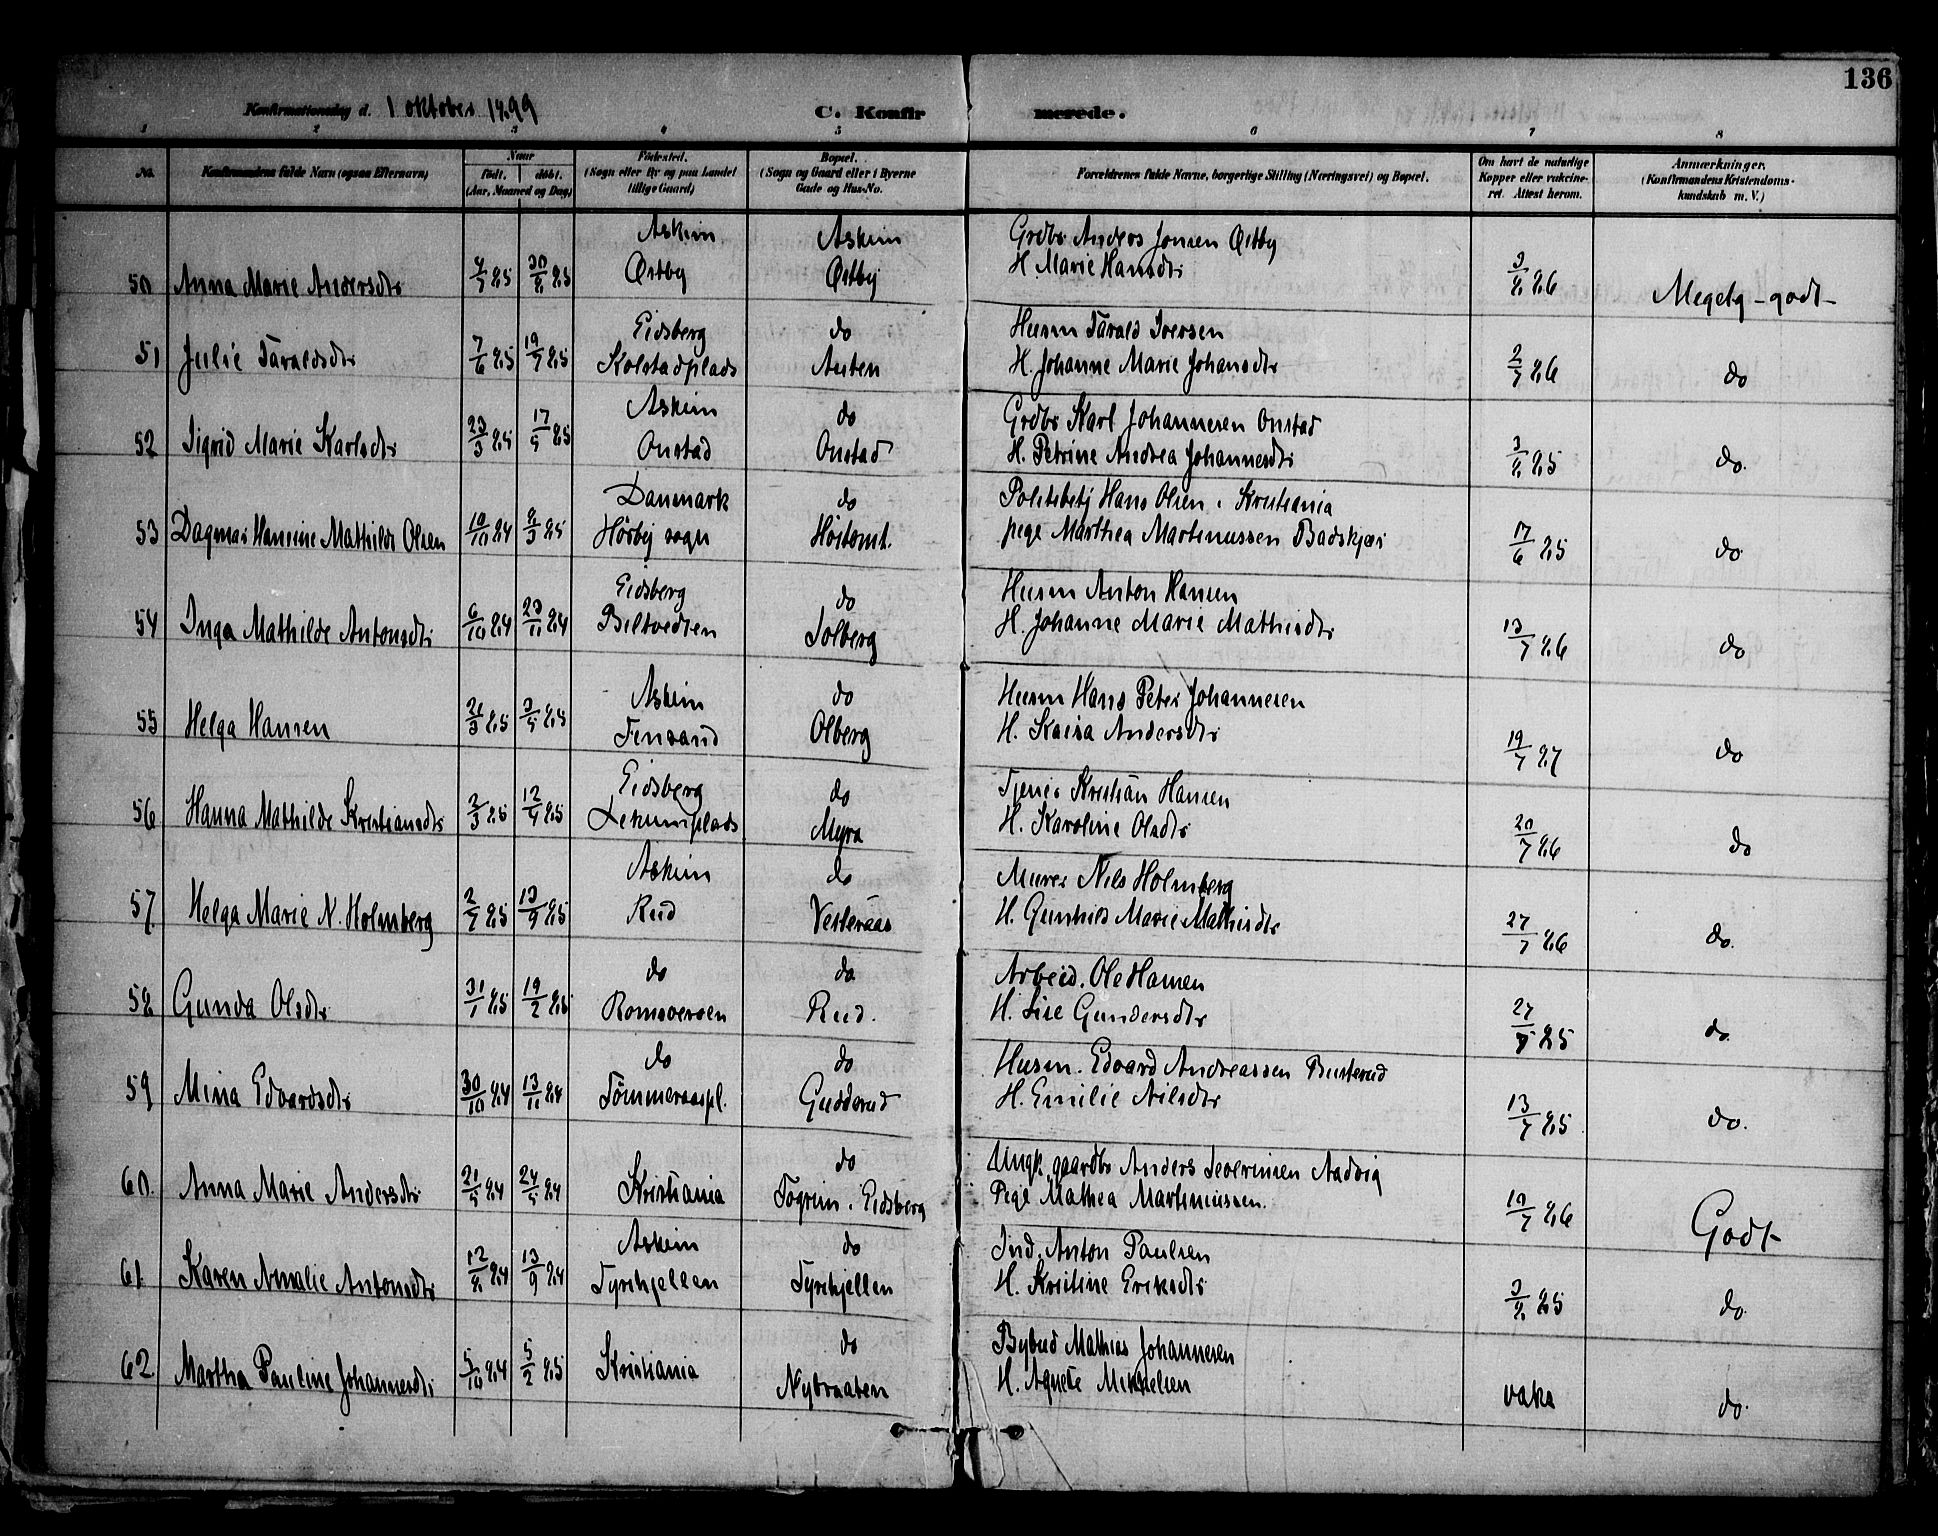 136
Konfirmationsdag d. 1 oktober 1899 C. Konfir merede.
1 2 3 4 5 6 7 8
No.
Konfirmandens fulde Navn (ogsaa Efternavn)
Naar
født. døbt.
(Aar, Maaned og Dag)
Fødested.
(Sogn eller By og paa Landet
tillige Gaard)
Bopæl.
(Sogn og Gaard eller i Byerne
Gade og Hus-No.
Forældrenes fulde Navne, borgerlige Stilling (Næringsvei) og Bopæl.
Om havt de naturlige
Kopper eller vakcine-
ret. Attest herom.
Anmærkninger.
(Konfirmandens Kristendoms-
kundskab m. V.)
Askim Askim Grdbr Anders Jonsen Østby
50 Anna Marie Andersdtr 4/7 85 30/8 85 Østby Østby H. Marie Hansdtr 3/8 86 Meget godt
Eidsberg do Husm Tarald Iversen
51 Julie Taraldsdtr 7/6 85 19/7 85 Kolstadplads Austen H. Johanne Marie Johansdtr 2/7 86 do
Askim do Grdbr Karl Johannesen Onstad
52 Sigrid Marie Karlsdtr 23/3 85 17/5 85 Onstad Onstad H. Petrine Andrea Johannesdtr 3/8 85 do.
Danmark do Politibetj Hans Olsen i Kristiania
53 Dagmar Hansine Mathilde Olsen 10/10 84 8/3 85 Hörby sogn Høstomt. pige Marthea Martinussen Badskjær 17/6 85 do
Eidsberg do Husm Anton Hansen
54 Inga Mathilde Antonsdtr 6/10 84 23/11 84 Biltvedten Solberg H. Johanne Marie Mathisdtr 13/7 86 do
Askim do Husm Hans Peter Johannesen
55 Helga Hansen 21/3 85 3/5 85 Finsand Olberg H. Kaisa Andersdtr 19/7 87 do
Eidsberg do Tjener Kristian Hansen
56 Hanna Mathilde Kristiansdtr 2/3 85 12/4 85 Lekumplads Myra H. Karoline Olsdtr 20/7 86 do
Askim do Murer Nils Holmberg
57. Helga Marie N. Holmberg 2/7 85 13/9 85 Rud Vesteraas H. Gunhild Marie Mathisdtr 27/7 86 do.
do do Arbeid. Ole Hansen
58 Gunda Olsdtr 31/1 85 19/2 85 Romsoersen Rud. H. Lise Gundersdtr 27/7 85 do.
do do Husm. Edvard Andreassen Busterud
59 Mina Edvardsdtr 30/10 84 13/11 84 Tömmeraaspl. Gudderud H. Emilie Nilsdtr 13/7 85 do.
do Ungk. gaardbr Anders Severinsen Aadvig
60. Anna Marie Andersdtr 21/5 84 24/5 84 Kristiania Togrim. Eidsberg Pige Mathea Martinussen. 10/7 86 Godt
Askim do Ind. Anton Paulsen
61 Karen Amalie Antonsdtr 12/8 84 13/9 84 Tyrihjellen Tyrihjellen H. Kristine Eriksdtr 3/8 85 do
do Bybud Mathias Johannesen
62 Martha Pauline Johannesdtr 5/10 84 5/2 85 Kristiania Nybraaten H. Agnete Mikkelsen vaks do.